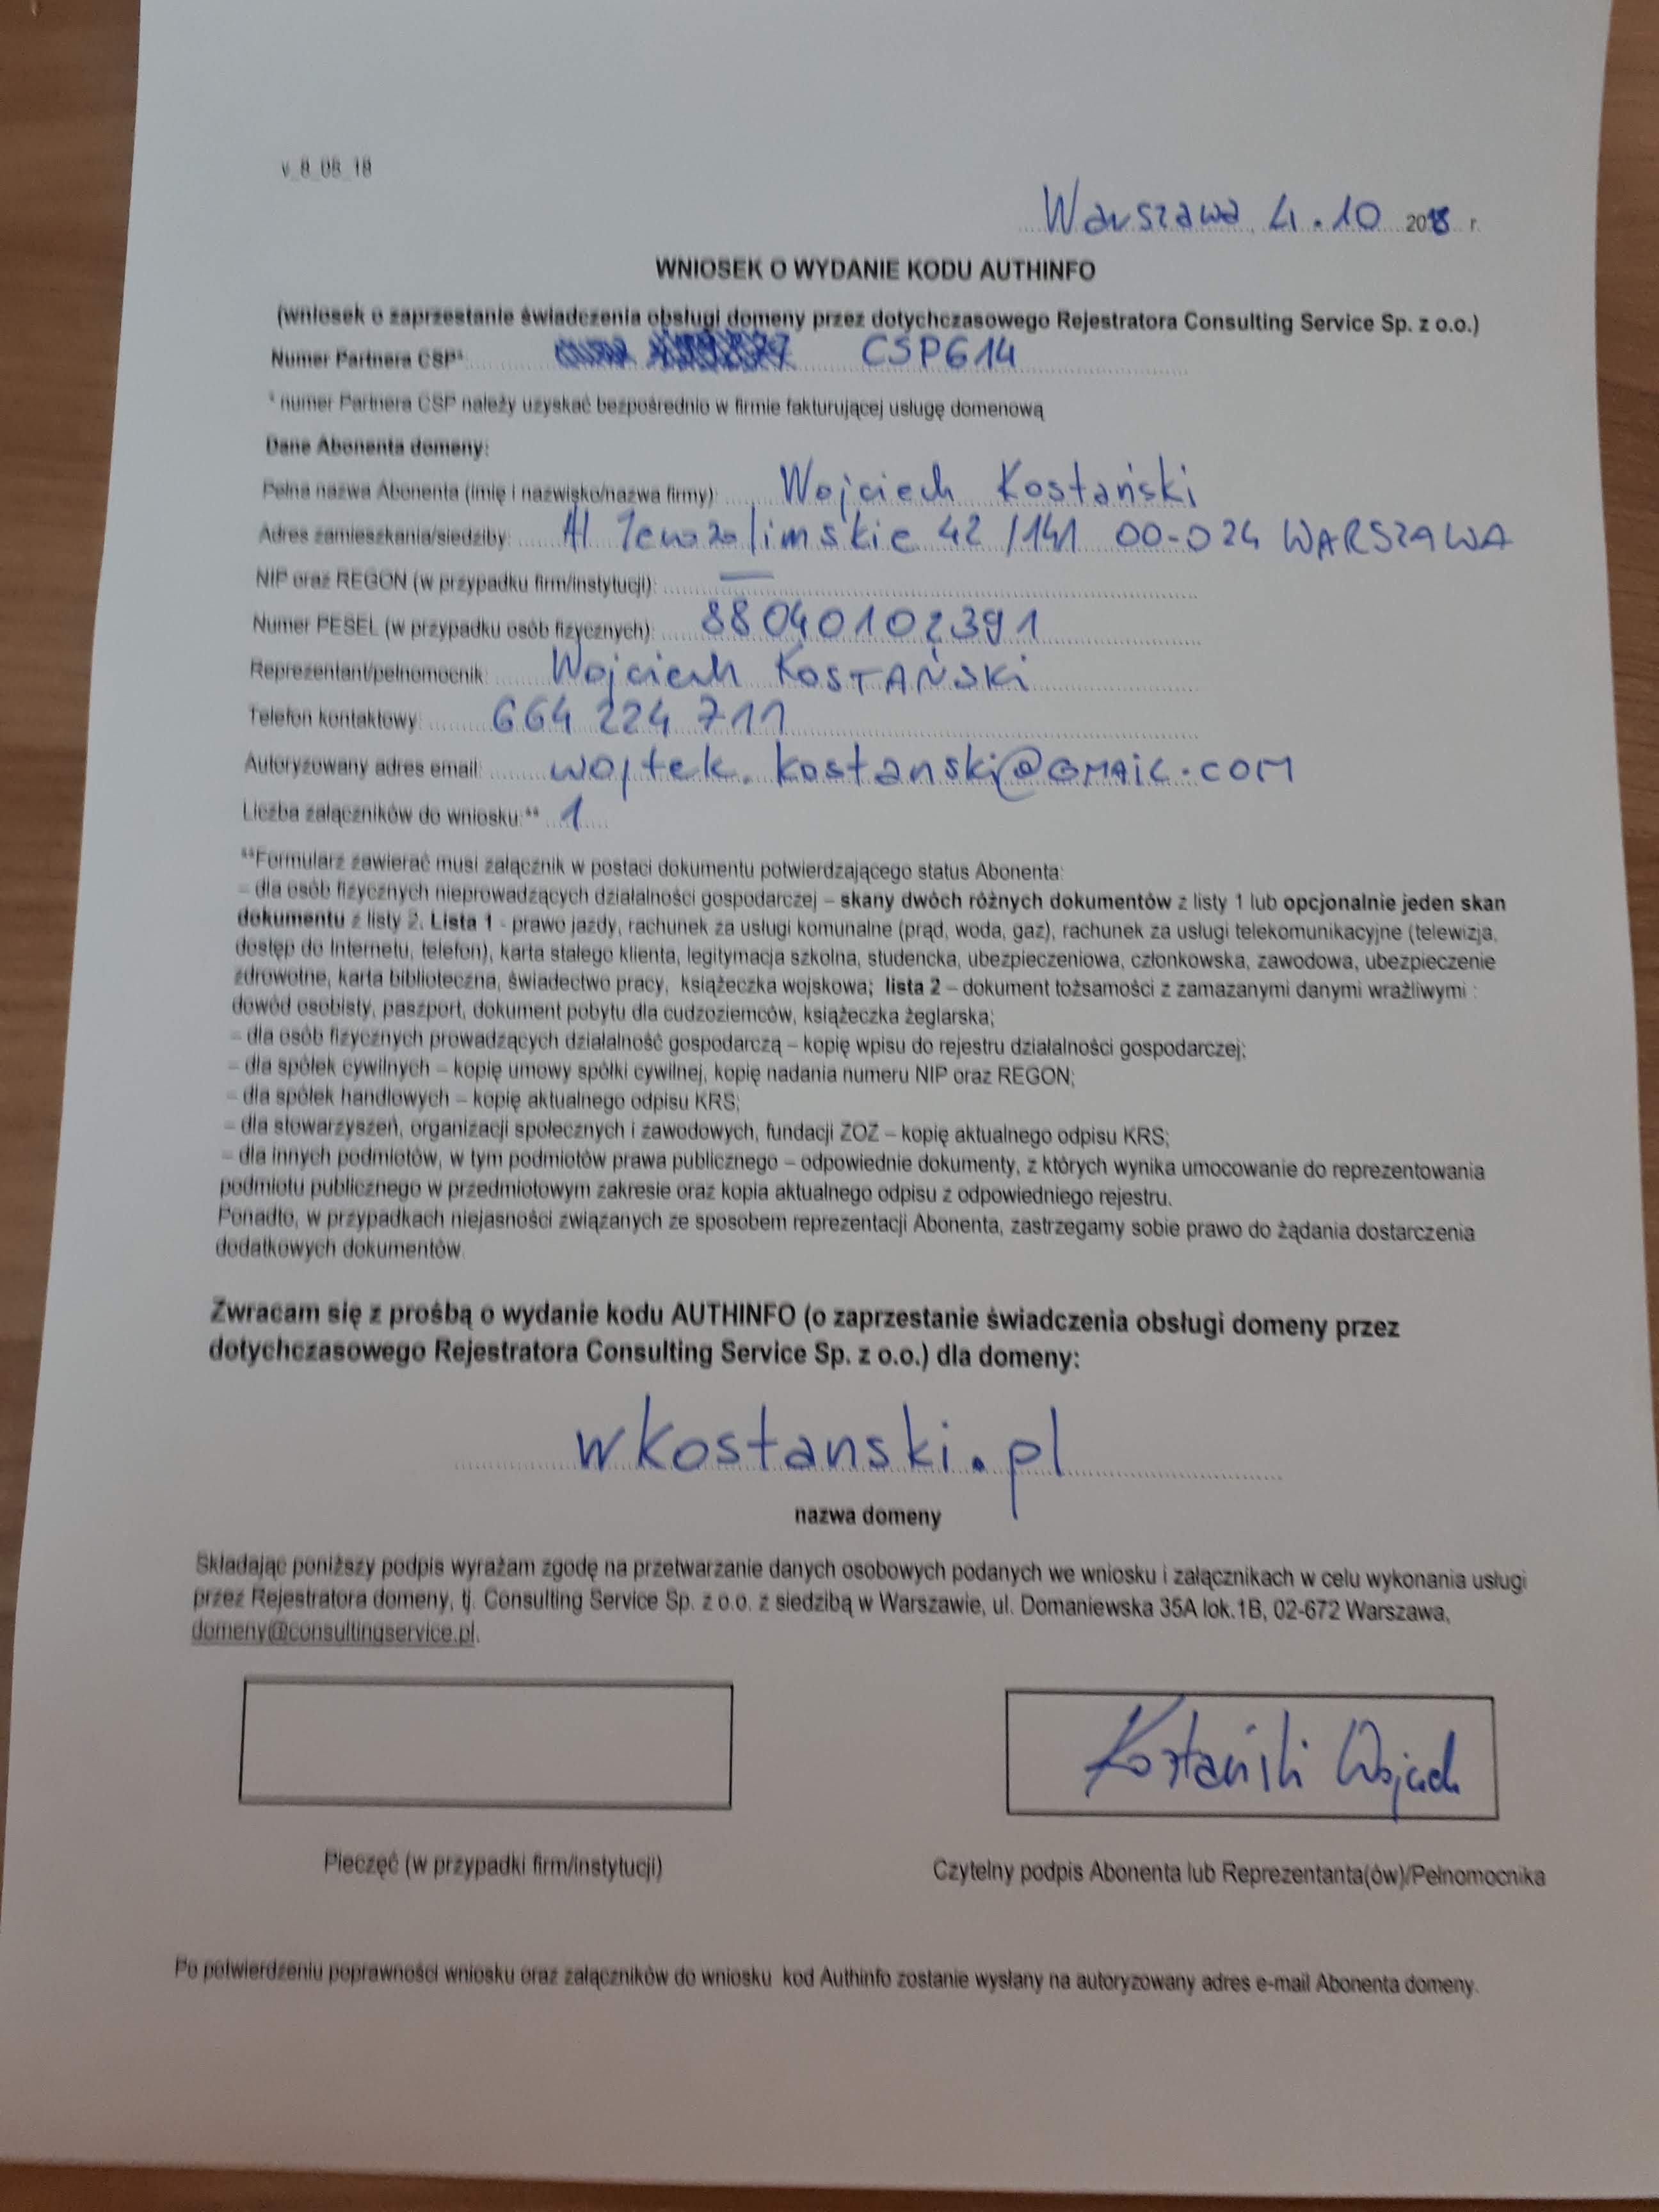 v_8_08_18
Warszawa, 4.10 2018 r.
WNIOSEK O WYDANIE KODU AUTHINFO
(wniosek o zaprzestanie świadczenia obsługi domeny przez dotychczasowego Rejestratora Consulting Service Sp. z o.o.)
Numer Partnera CSP* CSP614
* numer Partnera CSP należy uzyskać bezpośrednio w firmie fakturującej usługę domenową
Dane Abonenta domeny:
Pełna nazwa Abonenta (imię i nazwisko/nazwa firmy): Wojciech Kostański
Adres zamieszkania/siedziby: Al Jerozolimskie 42/141 00-024 WARSZAWA
NIP oraz REGON (w przypadku firm/instytucji): —
Numer PESEL (w przypadku osób fizycznych): 88040102391
Reprezentant/pełnomocnik: Wojciech KOSTAŃSKi
Telefon kontaktowy: 664 224 711
Autoryzowany adres email: wojtek.kostanski@GMAiL.COM
Liczba załączników do wniosku:** 1
**Formularz zawierać musi załącznik w postaci dokumentu potwierdzającego status Abonenta:
– dla osób fizycznych nieprowadzących działalności gospodarczej – skany dwóch różnych dokumentów z listy 1 lub opcjonalnie jeden skan
dokumentu z listy 2. Lista 1 - prawo jazdy, rachunek za usługi komunalne (prąd, woda, gaz), rachunek za usługi telekomunikacyjne (telewizja,
dostęp do Internetu, telefon), karta stałego klienta, legitymacja szkolna, studencka, ubezpieczeniowa, członkowska, zawodowa, ubezpieczenie
zdrowotne, karta biblioteczna, świadectwo pracy, książeczka wojskowa; lista 2 – dokument tożsamości z zamazanymi danymi wrażliwymi :
dowód osobisty, paszport, dokument pobytu dla cudzoziemców, książeczka żeglarska;
– dla osób fizycznych prowadzących działalność gospodarczą – kopię wpisu do rejestru działalności gospodarczej;
– dla spółek cywilnych – kopię umowy spółki cywilnej, kopię nadania numeru NIP oraz REGON;
– dla spółek handlowych – kopię aktualnego odpisu KRS;
– dla stowarzyszeń, organizacji społecznych i zawodowych, fundacji ZOZ – kopię aktualnego odpisu KRS;
– dla innych podmiotów, w tym podmiotów prawa publicznego – odpowiednie dokumenty, z których wynika umocowanie do reprezentowania
podmiotu publicznego w przedmiotowym zakresie oraz kopia aktualnego odpisu z odpowiedniego rejestru.
Ponadto, w przypadkach niejasności związanych ze sposobem reprezentacji Abonenta, zastrzegamy sobie prawo do żądania dostarczenia
dodatkowych dokumentów.
Zwracam się z prośbą o wydanie kodu AUTHINFO (o zaprzestanie świadczenia obsługi domeny przez
dotychczasowego Rejestratora Consulting Service Sp. z o.o.) dla domeny:
wkostanski.pl
nazwa domeny
Składając poniższy podpis wyrażam zgodę na przetwarzanie danych osobowych podanych we wniosku i załącznikach w celu wykonania usługi
przez Rejestratora domeny, tj. Consulting Service Sp. z o.o. z siedzibą w Warszawie, ul. Domaniewska 35A lok.1B, 02-672 Warszawa,
domeny@consultingservice.pl.
Kostański Wojciech
Pieczęć (w przypadki firm/instytucji)
Czytelny podpis Abonenta lub Reprezentanta(ów)/Pełnomocnika
Po potwierdzeniu poprawności wniosku oraz załączników do wniosku kod Authinfo zostanie wysłany na autoryzowany adres e-mail Abonenta domeny.